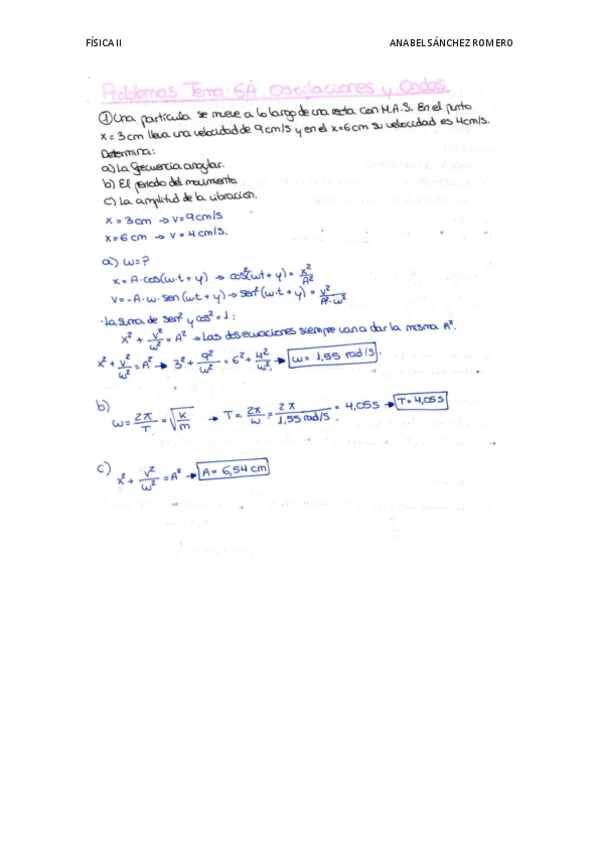 FÍSICA II
ANABEL SÁNCHEZ ROMERO
Problemas Tema 6A. Oscilaciones y Ondas.
① Una partícula se mueve a lo largo de una recta con M.A.S. En el punto
x = 3 cm lleva una velocidad de 9 cm/s y en el x = 6 cm su velocidad es 4 cm/s.
Determina:
a) La frecuencia angular.
b) El periodo del movimiento
c) La amplitud de la vibracion.
x = 3 cm → v = 9 cm/s
x = 6 cm → v = 4 cm/s.
a) ω = ?
x = A · cos(ω·t + φ) → cos²(ωt + φ) = x²/A²
v = -A·ω·sen(ω·t + φ) → sen²(ω·t + φ) = v²/A²·ω²
· La suma de sen² y cos² = 1:
x² + v²/ω² = A² → Las dos ecuaciones siempre van a dar la misma A².
x² + v²/ω² = A² → 3² + 9²/ω² = 6² + 4²/ω² → ω = 1,55 rad/s.
b)
ω = 2π/T = √(k/m) → T = 2π/ω = 2π/1,55 rad/s = 4,05 s → T = 4,05 s
c) x² + v²/ω² = A² → A = 6,54 cm